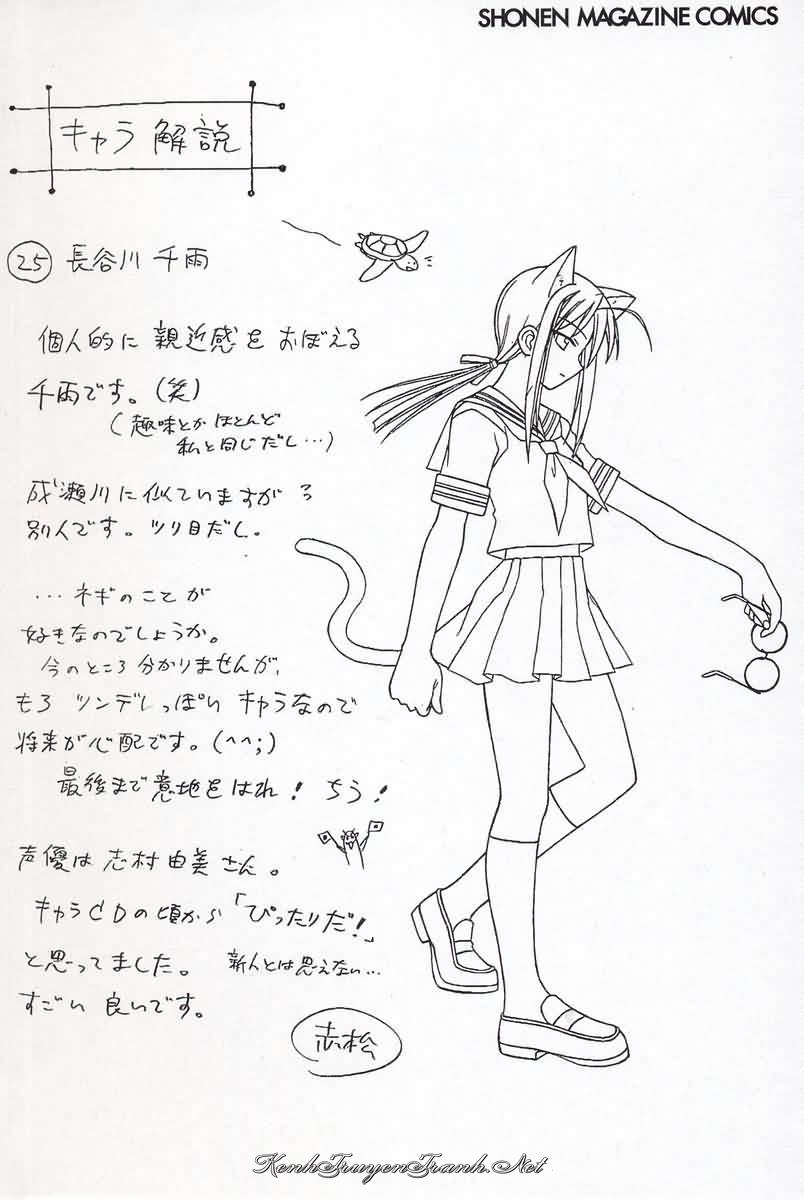 SHONEN MAGAZINE COMICS
キャラ 解説
㉕ 長谷川 千雨
個人的に 親近感を おぼえる
千雨です。(笑)
(趣味とか ほとんど
私と同じだし…)
成瀬川に似ていますが
別人です。ツリ目だし。
…ネギのことが
好きなのでしょうか。
今のところ 分かりませんが、
もろ ツンデレっぽい キャラなので
将来が心配です。(^^;)
最後まで 意地をはれ! ちう!
声優は 志村 由美 さん。
キャラCDの頃から「ぴったりだ!」
と思ってました。 新人とは思えない…
すごい 良いです。
赤松
KenhTruyenTranh.Net